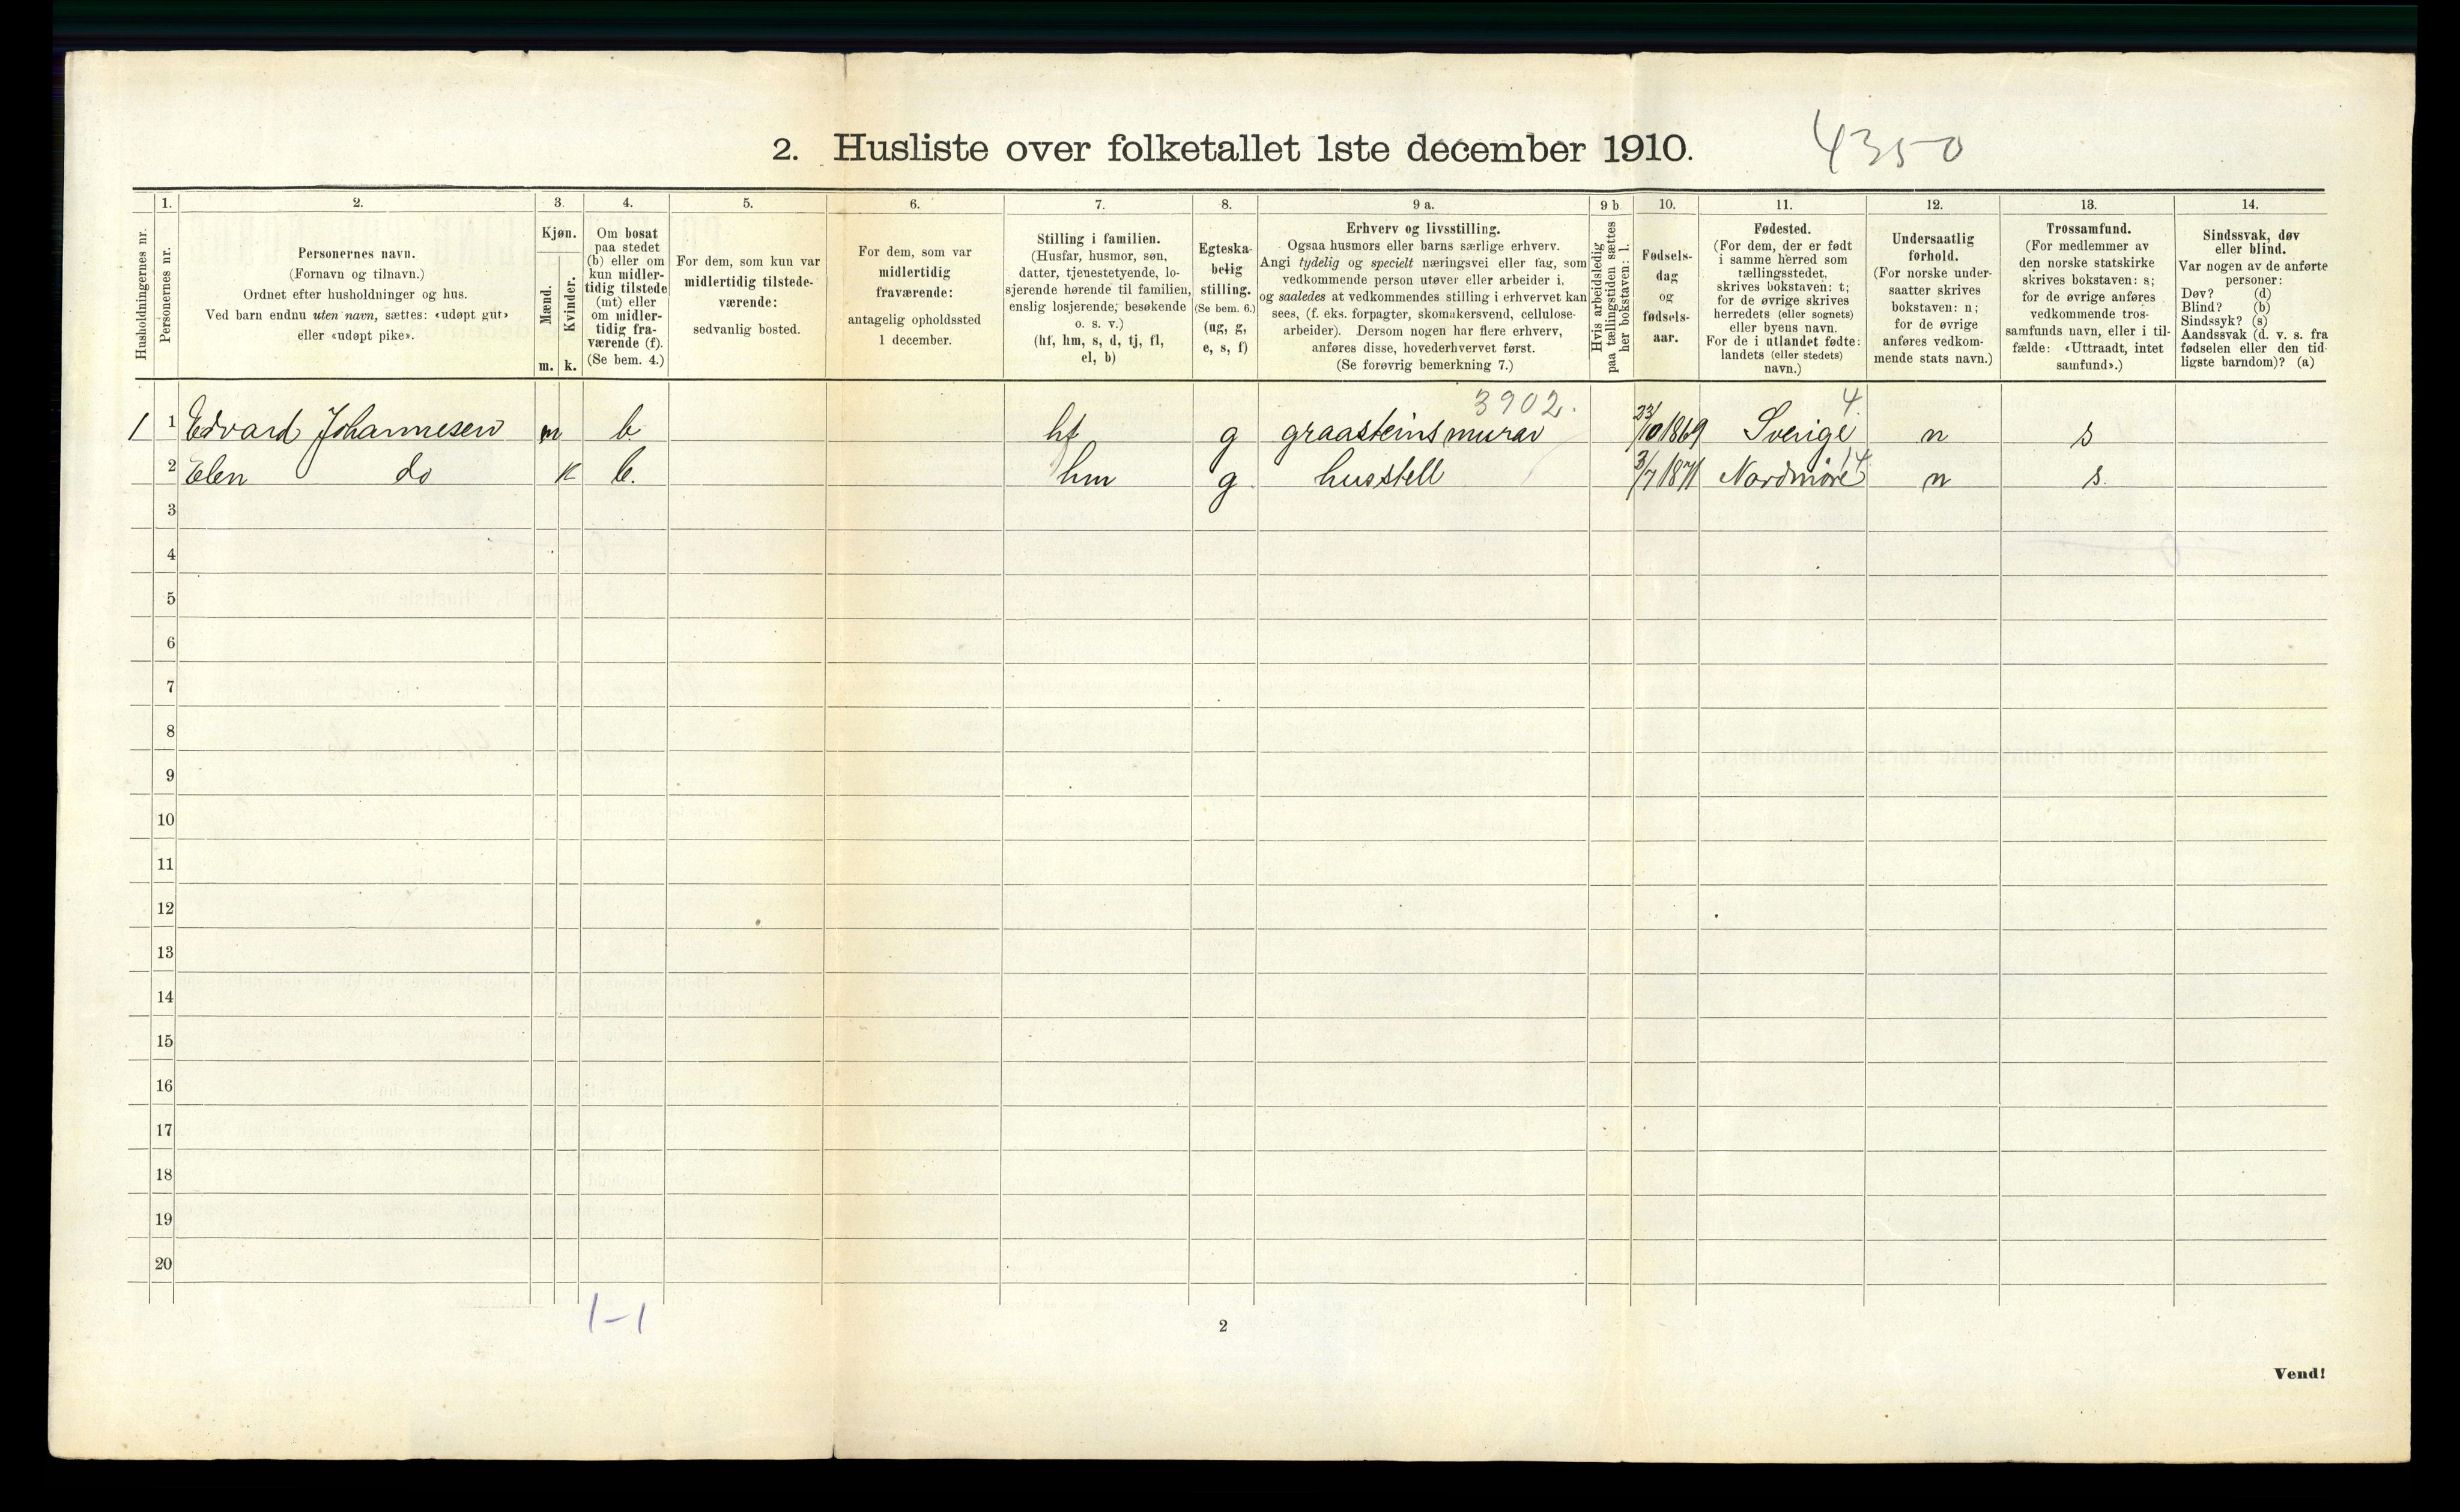 2. Husliste over folketallet 1ste december 1910.
4350
Husholdningernes nr.
1.
Personernes nr.
2.
Personernes navn.
(Fornavn og tilnavn.)
Ordnet efter husholdninger og hus.
Ved barn endnu uten navn, sættes: «udøpt gut»
eller «udøpt pike».
3.
Kjøn.
Mænd.
Kvinder.
m. k.
4.
Om bosat
paa stedet
(b) eller om
kun midler-
tidig tilstede
(mt) eller
om midler-
tidig fra-
værende (f).
(Se bem. 4.)
5.
For dem, som kun var
midlertidig tilstede-
værende:
sedvanlig bosted.
6.
For dem, som var
midlertidig
fraværende:
antagelig opholdssted
1 december.
7.
Stilling i familien.
(Husfar, husmor, søn,
datter, tjenestetyende, lo-
sjerende hørende til familien,
enslig losjerende, besøkende
o. s. v.)
(hf, hm, s, d, tj, fl,
el, b)
8.
Egteska-
belig
stilling.
(Se bem. 6.)
(ug, g,
e, s, f)
9 a.
Erhverv og livsstilling.
Ogsaa husmors eller barns særlige erhverv.
Angi tydelig og specielt næringsvei eller fag, som
vedkommende person utøver eller arbeider i,
og saaledes at vedkommendes stilling i erhvervet kan
sees, (f. eks. forpagter, skomakersvend, cellulose-
arbeider). Dersom nogen har flere erhverv,
anføres disse, hovederhvervet først.
(Se forøvrig bemerkning 7.)
9 b
Hvis arbeidsledig
paa tællingstiden sættes
her bokstaven: l.
10.
Fødsels-
dag
og
fødsels-
aar.
11.
Fødested.
(For dem, der er født
i samme herred som
tællingsstedet,
skrives bokstaven: t;
for de øvrige skrives
herredets (eller sognets)
eller byens navn.
For de i utlandet fødte:
landets (eller stedets)
navn.)
12.
Undersaatlig
forhold.
(For norske under-
saatter skrives
bokstaven: n;
for de øvrige
anføres vedkom-
mende stats navn.)
13.
Trossamfund.
(For medlemmer av
den norske statskirke
skrives bokstaven: s;
for de øvrige anføres
vedkommende tros-
samfunds navn, eller i til-
fælde: «Uttraadt, intet
samfund».)
14.
Sindssvak, døv
eller blind.
Var nogen av de anførte
personer:
Døv? (d)
Blind? (b)
Sindssyk? (s)
Aandssvak (d. v. s. fra
fødselen eller den tid-
ligste barndom)? (a)
3902. 4.
1 1 Edvard Johannesen m b hf g graasteinsmurar 23/10 1869 Sverige n s
14
2 Elen do k b. hm g husstell 3/7 1871 Nordmøre n s.
3
4
5
6
7
8
9
10
11
12
13
14
15
16
17
18
19
20
1-1
2
Vend!